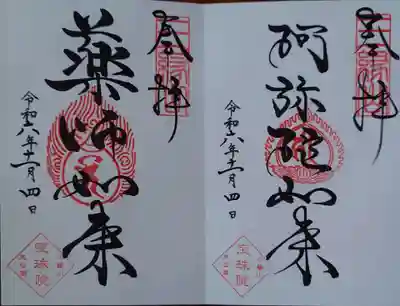 奉拝
阿弥陀如来
令和六年十一月四日
宝珠院
奉拝
薬師如来
令和六年十一月四日
宝珠院